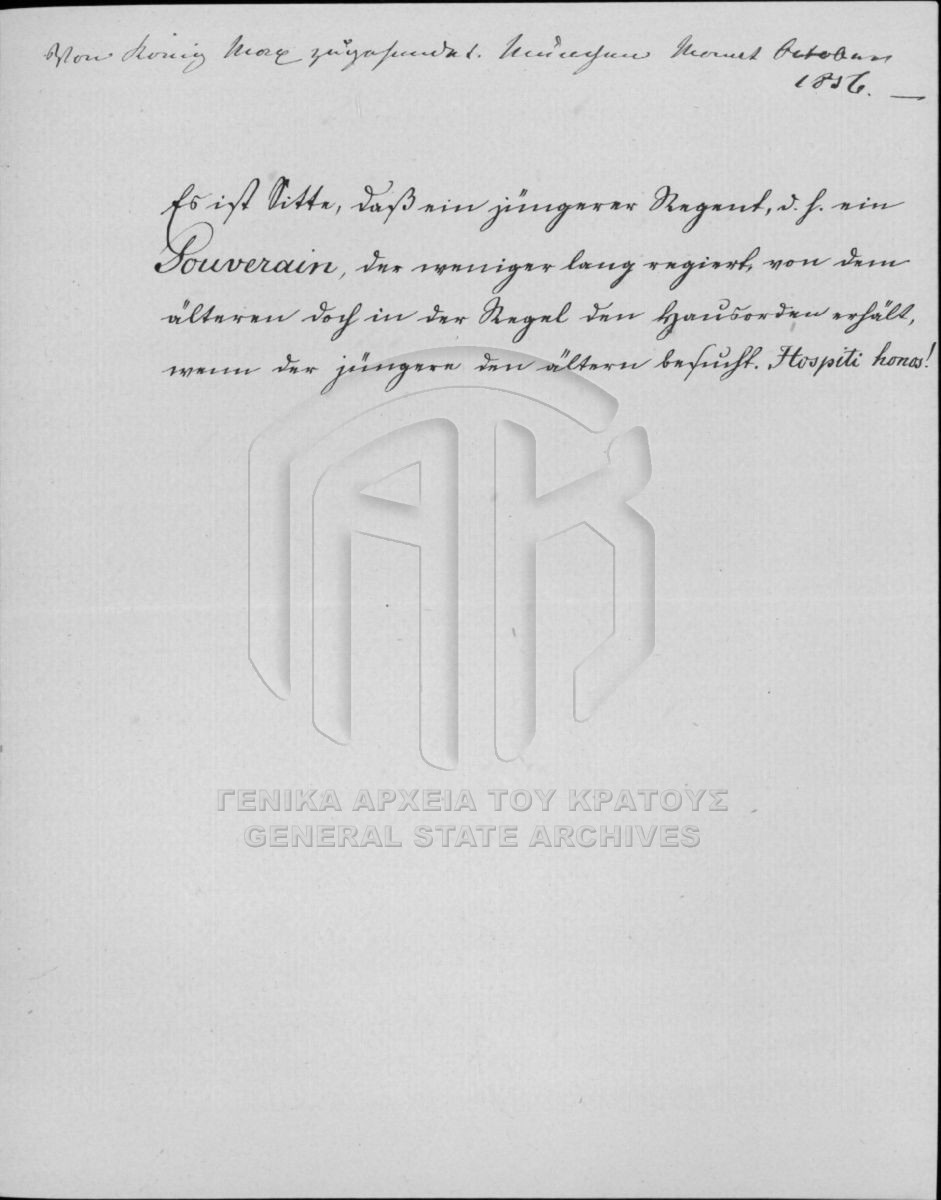 Von König Max zugesendet. München Monat October
1856. —
Es ist Sitte, daß ein jüngerer Regent, d. h. ein
Souverain, der weniger lang regiert, von dem
älteren doch in der Regel den Hausorden erhält,
wenn der jüngere den ältern besucht. Hospiti honos!
ΓΕΝΙΚΑ ΑΡΧΕΙΑ ΤΟΥ ΚΡΑΤΟΥΣ
GENERAL STATE ARCHIVES